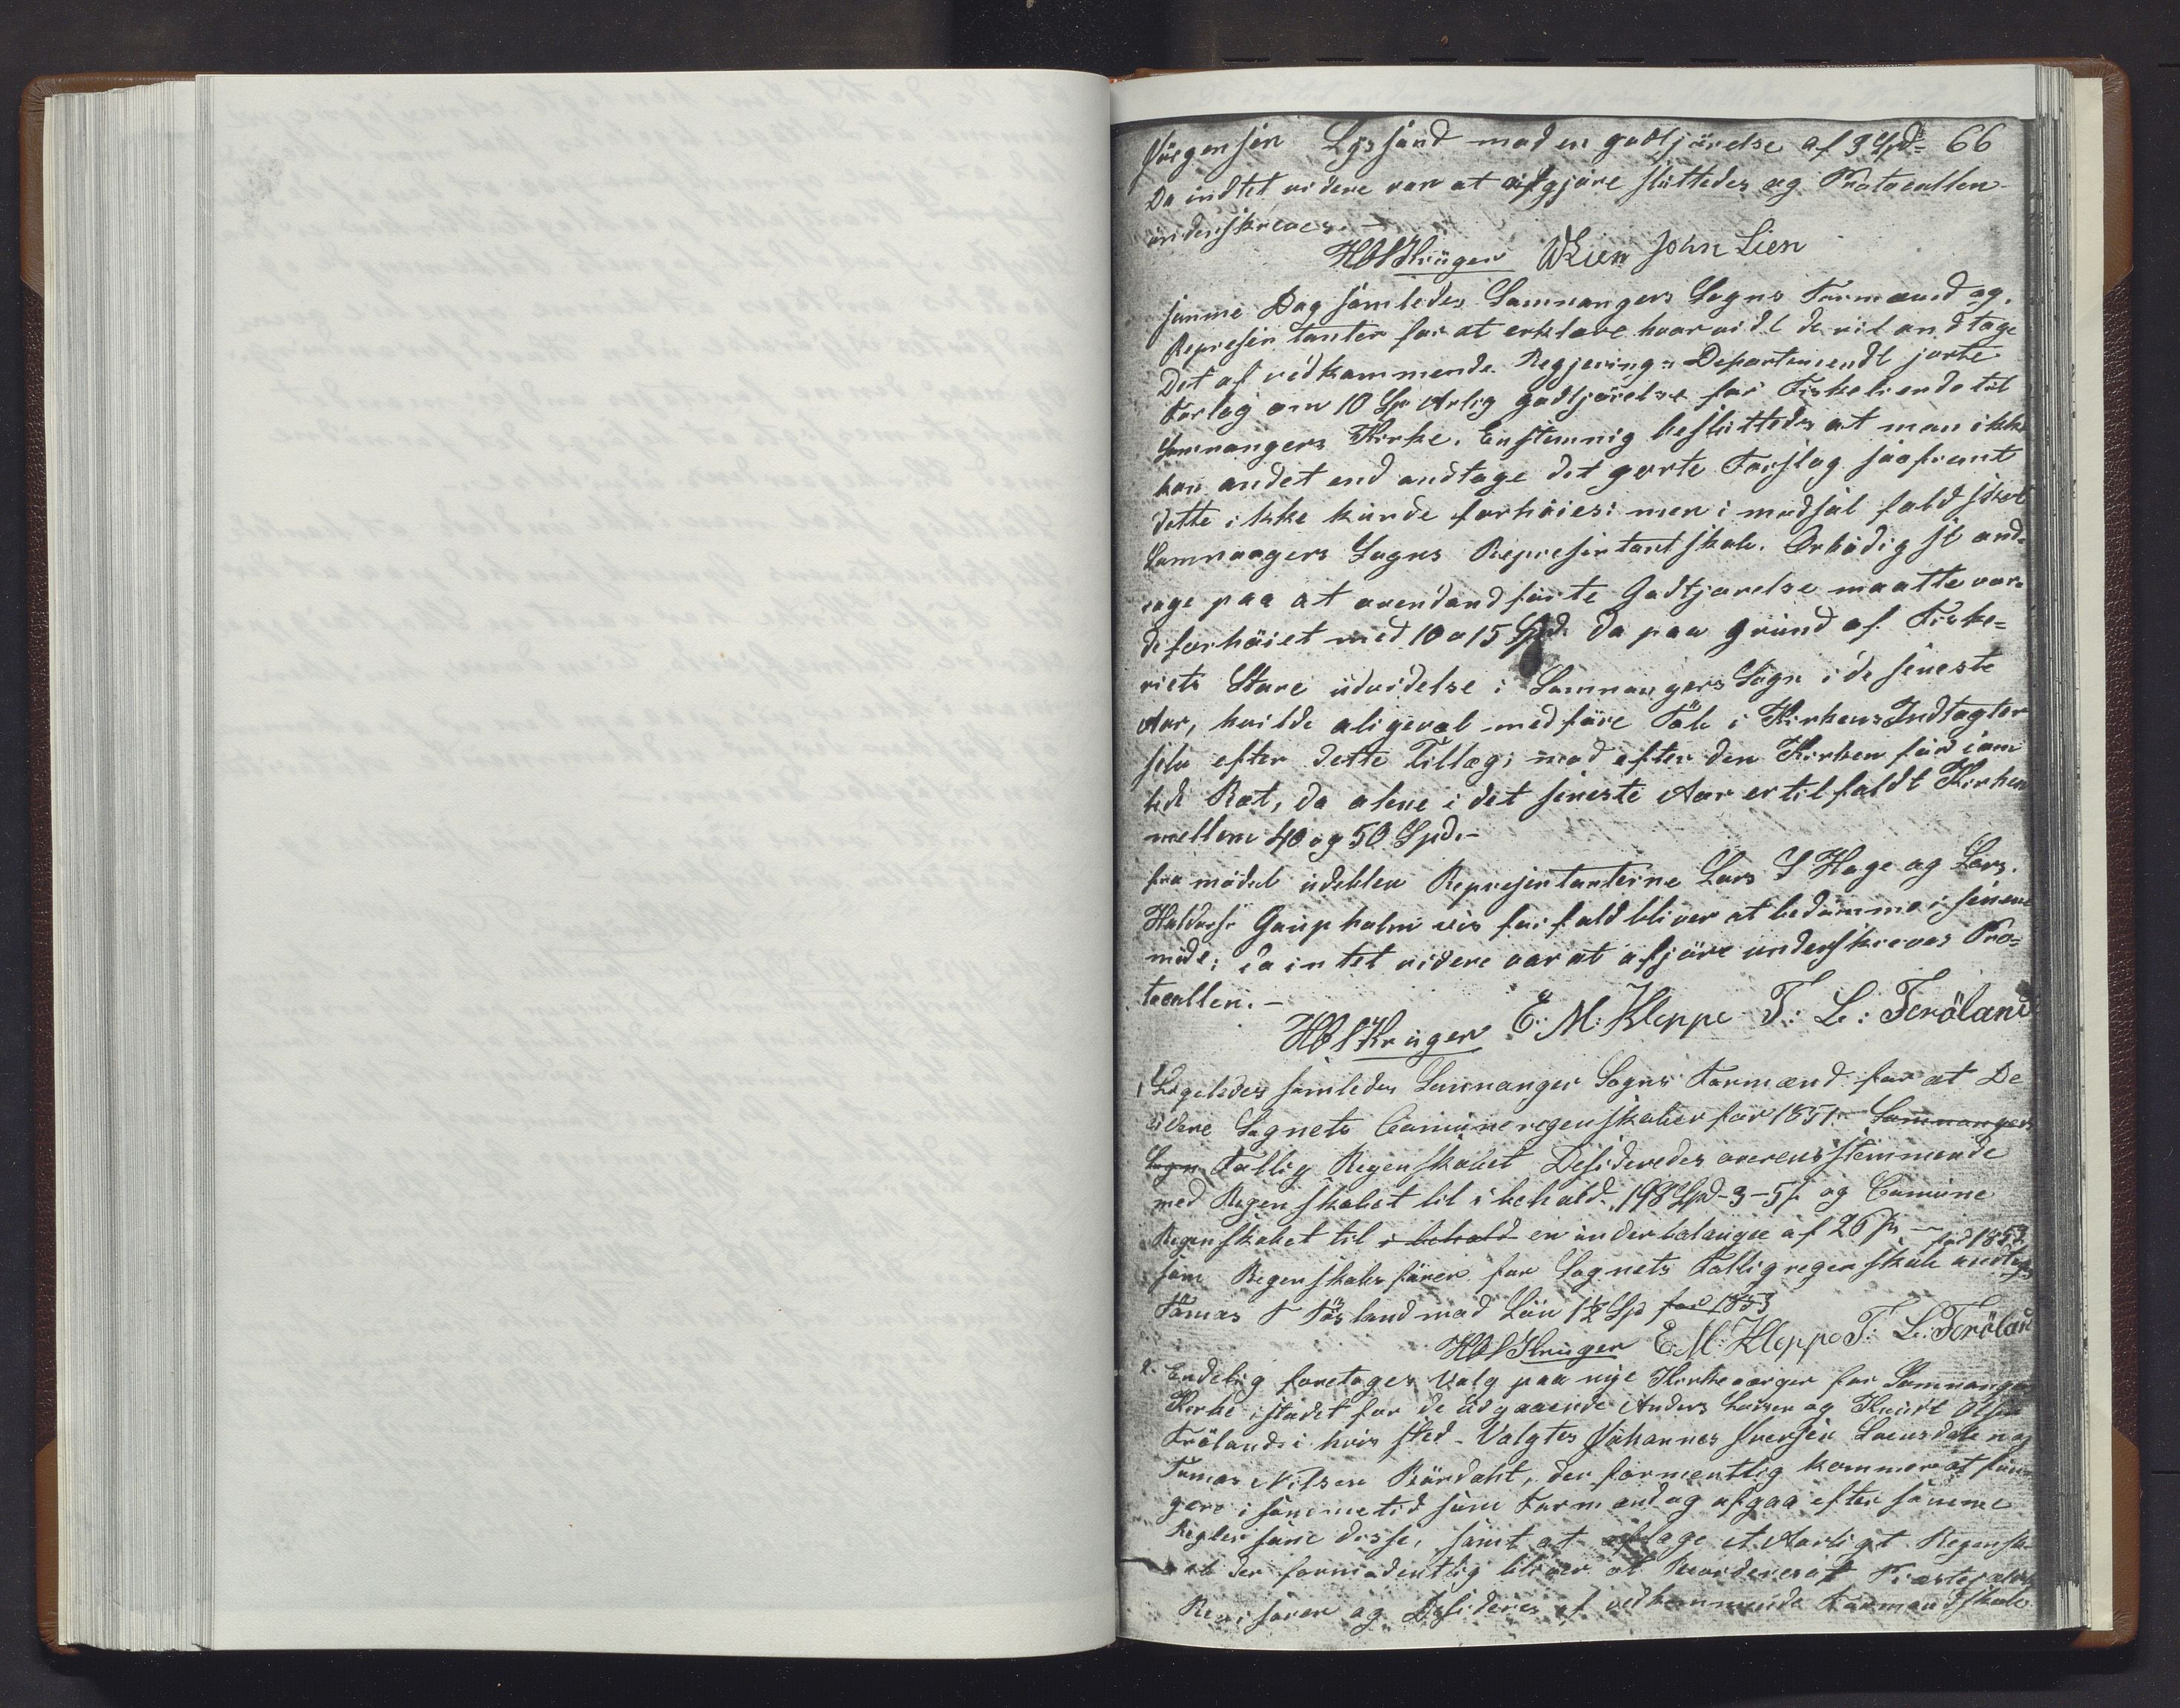 Jörgensen Lÿssand mod en godtjörelse af 3 Spd= 66
Da indtet videre var at afgjöre sluttedes og Protocollen
underskreves. –
HOSKrüger WLien John Lien
samme Dag samledes Samnangers Sogns Formænd og
Representanter for at erklære hvorvidt de vil andtage
Det af vedkommende Regjerings Departementdt jorte
Forlag om 10 Sp Arlig godtjörelse for Fisketiende til
Samnangers Kirke. Enstemnig besluttedes at man ikke
kan andet end andtage det gjorte Forslag saafremt
dette ikke kunde forhöies: men i modsat fald skal
Samnangers Sogns Representantskab. Erbödig st and-
rage paa at ovendandförte Godtjörelse maatte vor-
de forhöiet med 10 a 15 Spd. da paa grund af Fiske=
riets Store udvidelse i Samnangers Sogn i de seneste
Aar, hvilde aligevel medföre Tab i Kirkens Indtægter
selv efter dette Tillæg; mod efter den Kirken för
Ret, da alene i det seneste Aar er tilfaldt Kirken
mellem 40 og 50 Spd. –
fra mödet udeblev Representanterne Lars S Hage og Lars
Haldorsr Gaupholm vis forfald bliver at bedømme i senere
möde; da intet videre var at afjöre underskreves Pro=
tocollen. –
HOSKrüger E: M: Kleppe T: L: Teröland
1 Ligeledes samledes Samnanger Sogns Formænd for at De
sidere Sognets Comüneregenskaber for 1851. Samnangers
Sogn Fattig Regenskabet Desideredes overensstemmende
med Regenskabet til i behold. 198 Spd-3-5ß og Comüne
Regenskabet til i behold en underbalange af 26 ß – for 1853
som Regenskabsförer for Sognets Fattigregenskab andtoges
Tömas T Tösland mod Lön 1½ Sp for 1853
HOSKrüger E. M: Kleppe T: L: Teröland
2. Endelig foretoges Valg paa nÿe Kirkeværger for Samnanger
Kirke istædet for de Udgaaende Anders Larsen og Knudt Olsen
Trölands i hvis sted – Valgtes Johannes Iversen og
Tomas Nilsen Bördahl, der formentlig kommer at fun-
gere i samme tid som Formænd og afgaa efter samme
Regler som disse, samt at aflage et Aarligt Regensk-
ab der formodentlig bliver at
Revisoren og Desideres af vedkommende Formandskab